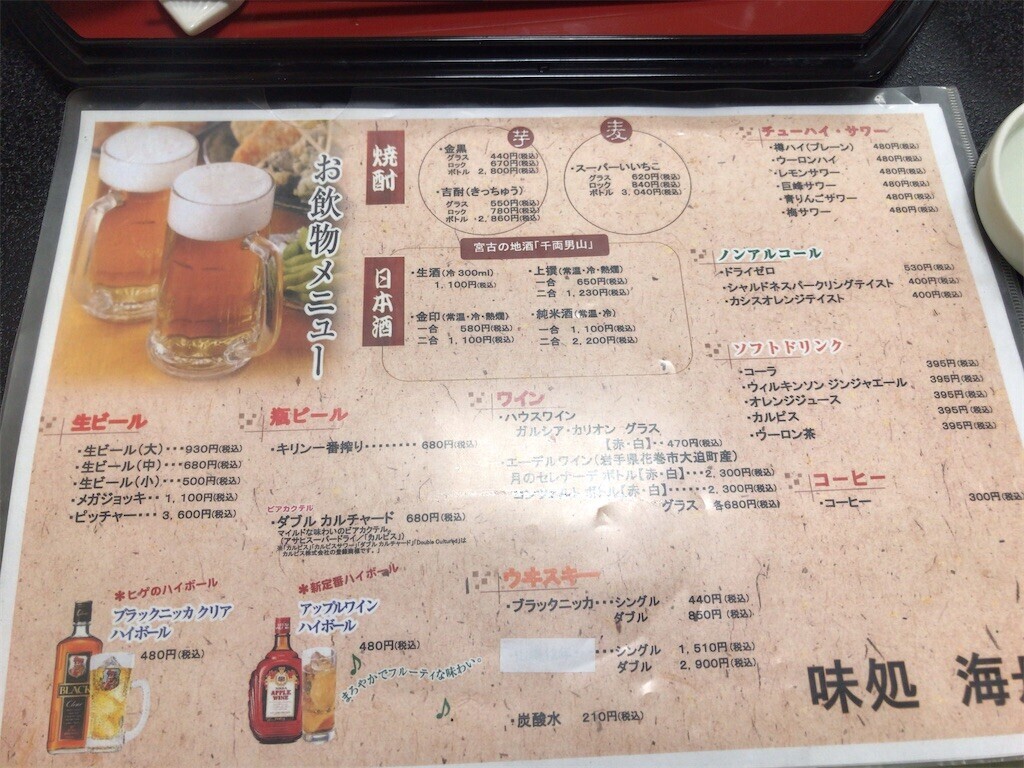 お飲物メニュー
焼酎
芋
・金黒
グラス 440円(税込)
ロック 670円(税込)
ボトル 2,800円(税込)
・吉酎(きっちゅう)
グラス 550円(税込)
ロック 780円(税込)
ボトル・2,860円(税込)
麦
・スーパーいいちこ
グラス 620円(税込)
ロック 840円(税込)
ボトル 3,040円(税込)
宮古の地酒「千両男山」
日本酒
・生酒(冷 300ml)
1,100円(税込)
・上撰(常温・冷・熱燗)
一合 650円(税込)
二合 1,230円(税込)
・金印(常温・冷・熱燗)
一合 580円(税込)
二合 1,100円(税込)
・純米酒(常温・冷)
一合 1,100円(税込)
二合 2,200円(税込)
チューハイ・サワー
・樽ハイ(プレーン) 480円(税込)
・ウーロンハイ 480円(税込)
・レモンサワー 480円(税込)
・巨峰サワー 480円(税込)
・青りんごサワー 480円(税込)
・梅サワー 480円(税込)
ノンアルコール
・ドライゼロ 530円(税込)
・シャルドネスパークリングテイスト 400円(税込)
・カシスオレンジテイスト 400円(税込)
ソフトドリンク
・コーラ 395円(税込)
・ウィルキンソン ジンジャエール 395円(税込)
・オレンジジュース 395円(税込)
・カルピス 395円(税込)
・ウーロン茶 395円(税込)
コーヒー
・コーヒー 300円(税込)
生ビール
・生ビール(大)・・・930円(税込)
・生ビール(中)・・・680円(税込)
・生ビール(小)・・・500円(税込)
・メガジョッキ・・1,100円(税込)
・ピッチャー・・・3,600円(税込)
瓶ビール
・キリン一番搾り・・・・・・・・680円(税込)
ビアカクテル
・ダブル カルチャード 680円(税込)
マイルドな味わいのビアカクテル
(アサヒスーパードライ/「カルピス」)
※「カルピス」「カルピスサワー」「ダブル カルチャード」「Double Cultured」は
カルピス株式会社の登録商標です。
ワイン
・ハウスワイン
ガルシア・カリオン グラス
【赤・白】・・470円(税込)
・エーデルワイン(岩手県花巻市大迫町産)
月のセレナーデ ボトル【赤・白】・・・2,300円(税込)
コンツェルト ボトル【赤・白】・・・・・・2,300円(税込)
グラス 各680円(税込)
ウヰスキー
・ブラックニッカ・・・シングル 440円(税込)
ダブル 850円(税込)
・・・シングル 1,510円(税込)
ダブル 2,900円(税込)
・炭酸水 210円(税込)
＊ヒゲのハイボール
ブラックニッカ クリア
ハイボール
480円(税込)
BLACK
Clear
＊新定番ハイボール
アップルワイン
ハイボール
480円(税込)
まろやかでフルーティな味わい。
APPLE
WINE
味処 海